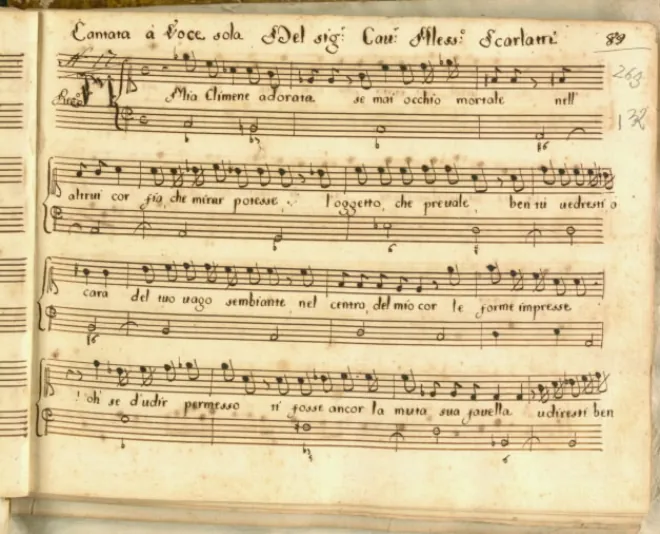 Cantata à Voce sola Del sig.r Cau.r Aless.o Scarlatti 89
263
Rec.o Mia Climene adorata. se mai occhio mortale nell'
132
altrui cor fia, che mirar potesse, l'oggetto, che preuale, ben tu uedresti o
cara del tuo uago sembiante nel centro, del mio cor le forme impresse
oh' se d'udir permesso ti fosse ancor la muta sua fauella udiresti ben